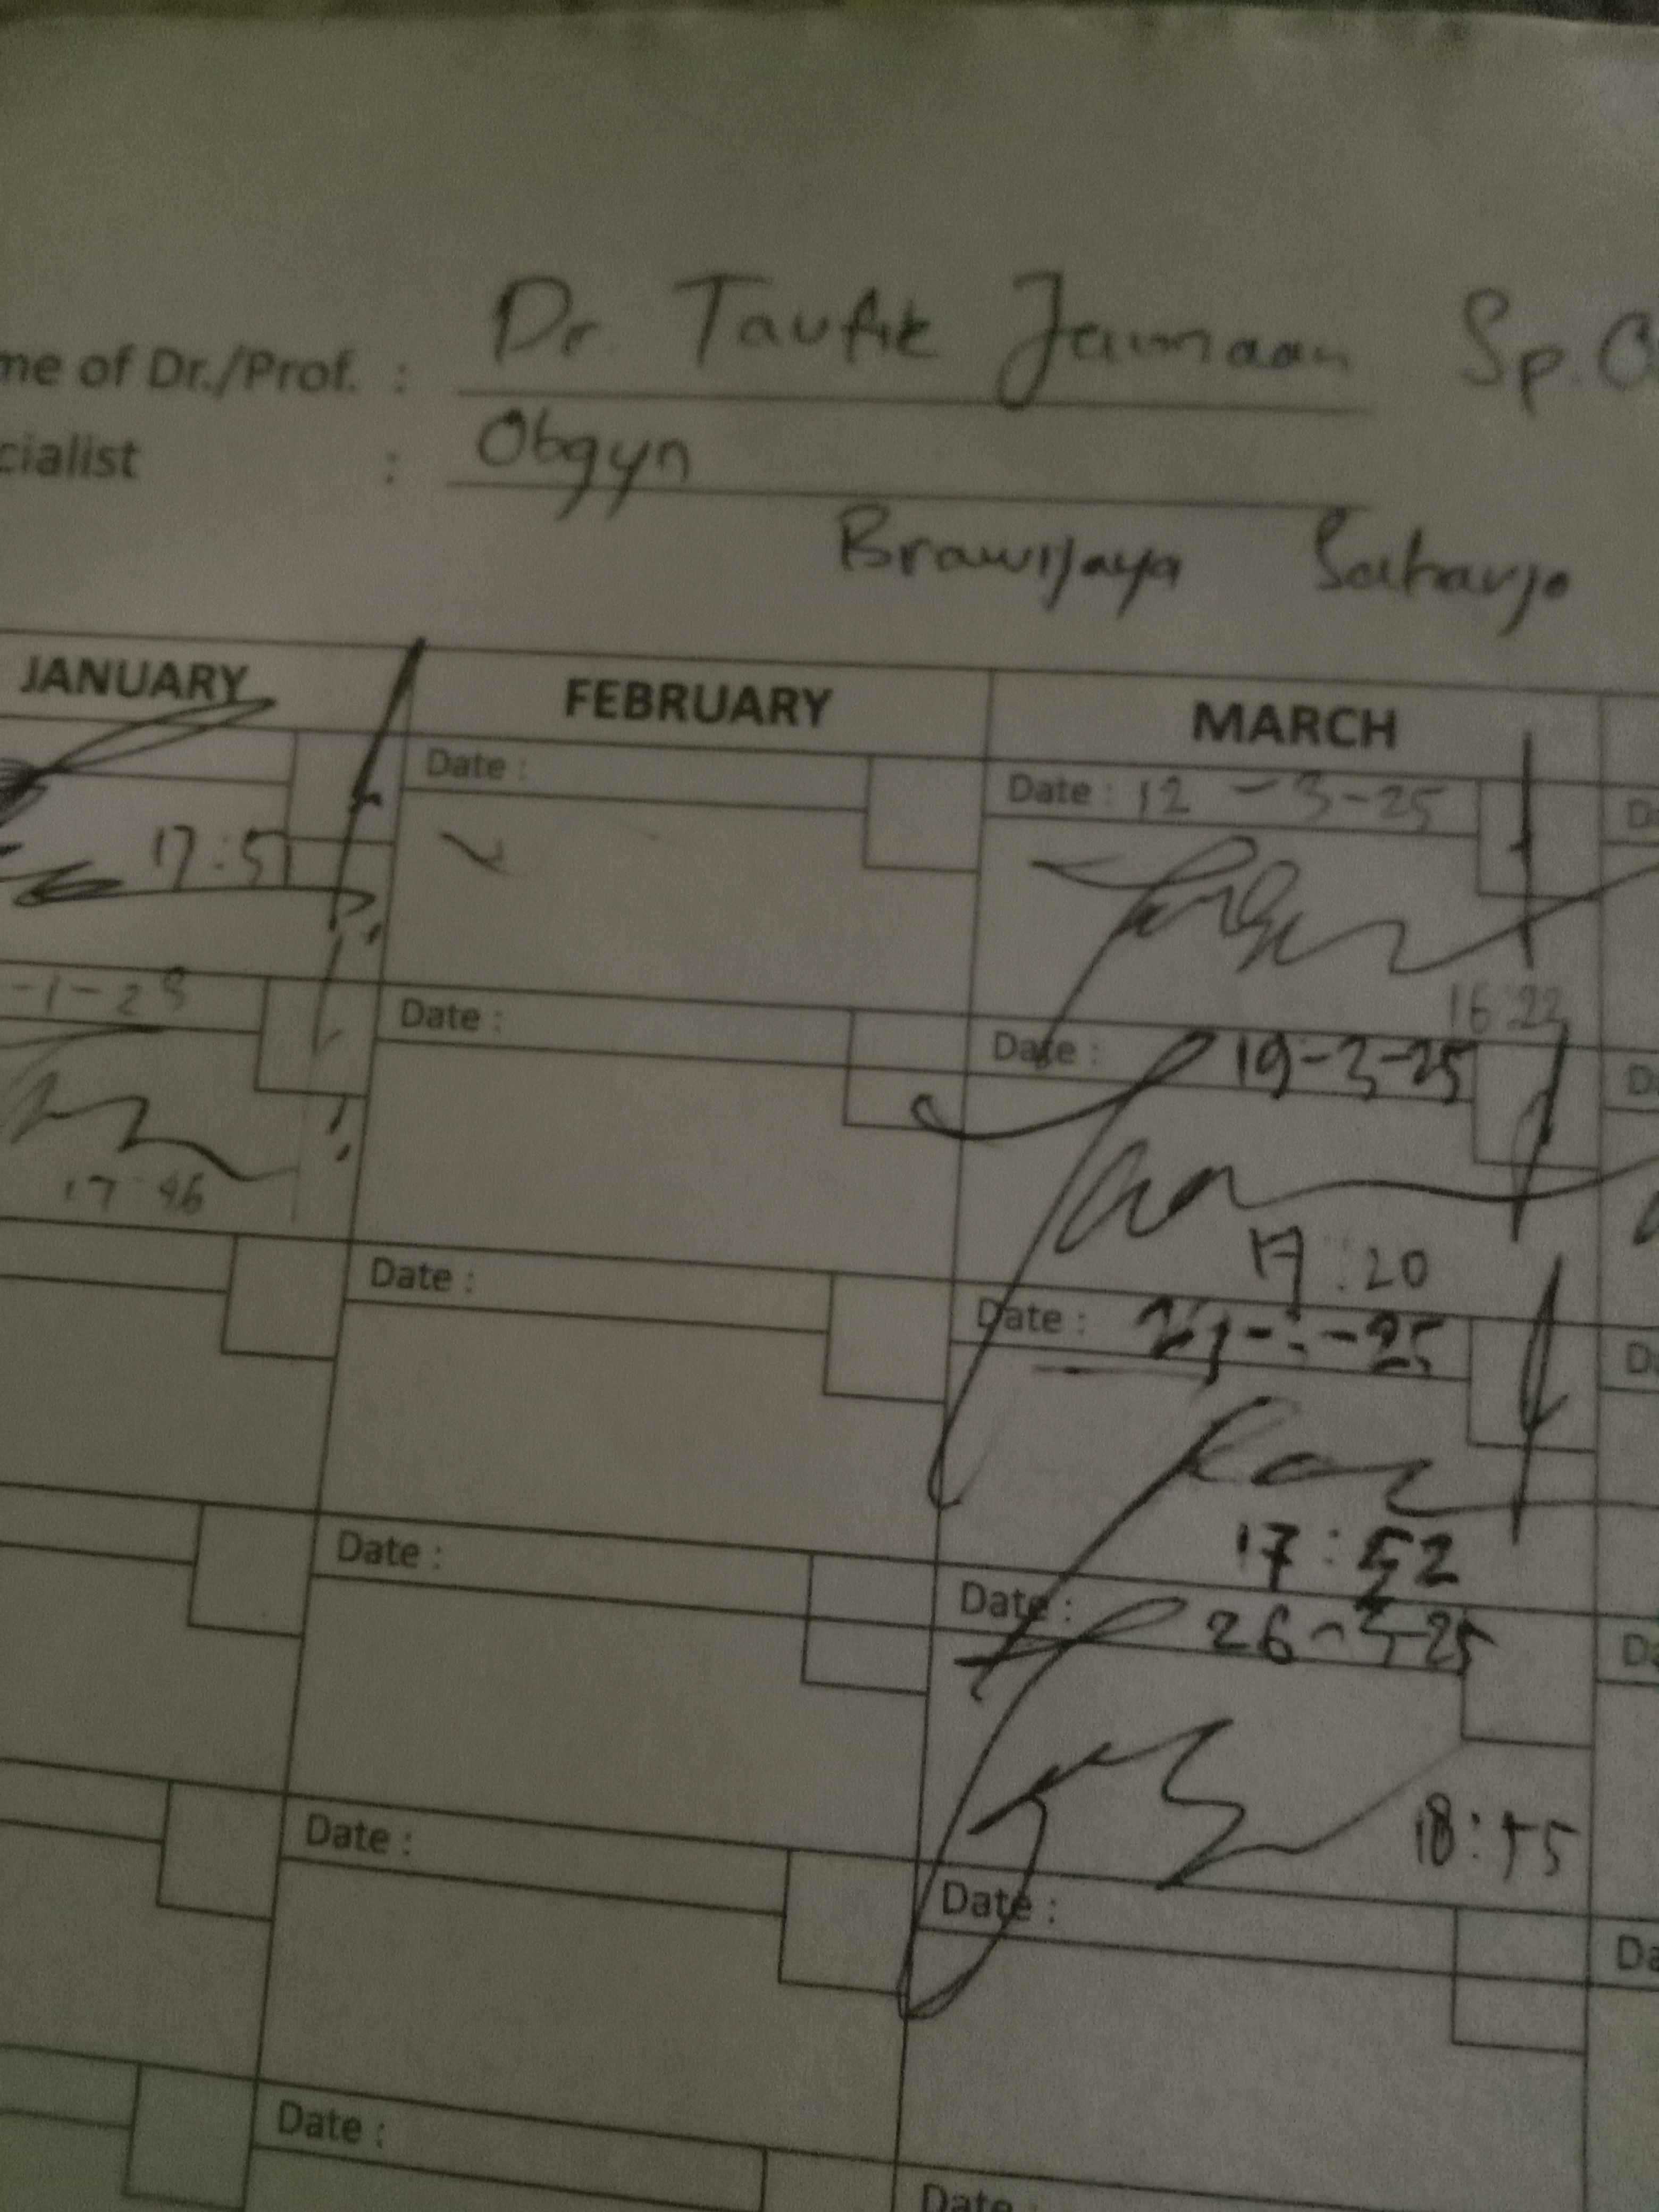 me of Dr./Prof. : Dr. Taufik Jamaan Sp.O
cialist : Obgyn
Brawijaya Saharjo
JANUARY FEBRUARY MARCH
Date : Date : 12 - 3 - 25
17:51
16:22
-1-25 Date : Date : 19-3-25
17 46
17:20
Date : Date :
17:52
Date : Date : 26-3-25
18:
Date : Date :
Date : Date